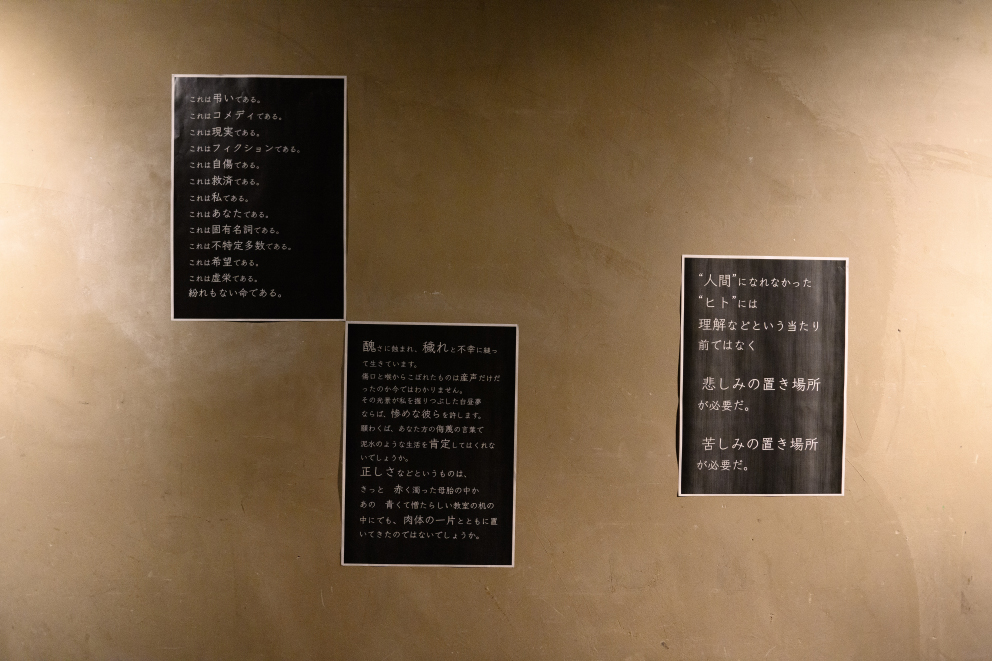 これは弔いである。
これはコメディである。
これは現実である。
これはフィクションである。
これは自傷である。
これは救済である。
これは私である。
これはあなたである。
これは固有名詞である。
これは不特定多数である。
これは希望である。
これは虚栄である。
紛れもない命である。
醜さに蝕まれ、穢れと不幸に縋っ
て生きています。
傷口と喉からこぼれたものは産声だけだ
ったのか今ではわかりません。
その光景が私を握りつぶした白昼夢
ならば、惨めな彼らを許します。
願わくば、あなた方の侮蔑の言葉で
泥水のような生活を肯定してはくれな
いでしょうか。
正しさなどというものは、
きっと 赤く濁った母胎の中か
あの 青くて憎たらしい教室の机の
中にでも、肉体の一片とともに置
いてきたのではないでしょうか。
“人間”になれなかった
“ヒト”には
理解などという当たり
前ではなく
悲しみの置き場所
が必要だ。
苦しみの置き場所
が必要だ。